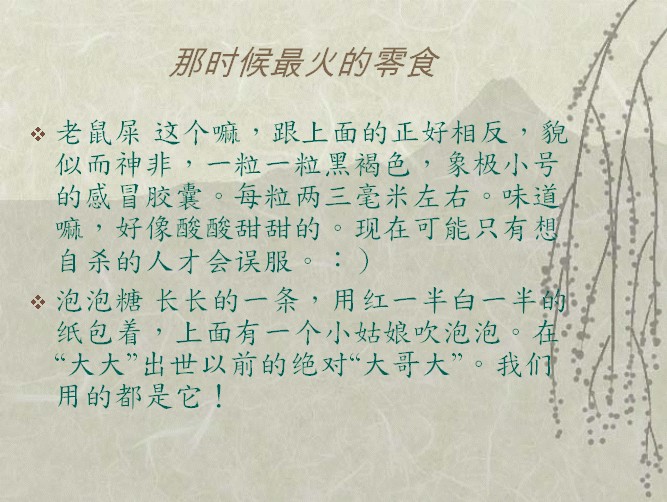 那时候最火的零食
老鼠屎 这个嘛，跟上面的正好相反，貌
似而神非，一粒一粒黑褐色，象极小号
的感冒胶囊。每粒两三毫米左右。味道
嘛，好像酸酸甜甜的。现在可能只有想
自杀的人才会误服。：）
泡泡糖 长长的一条，用红一半白一半的
纸包着，上面有一个小姑娘吹泡泡。在
“大大”出世以前的绝对“大哥大”。我们
用的都是它！